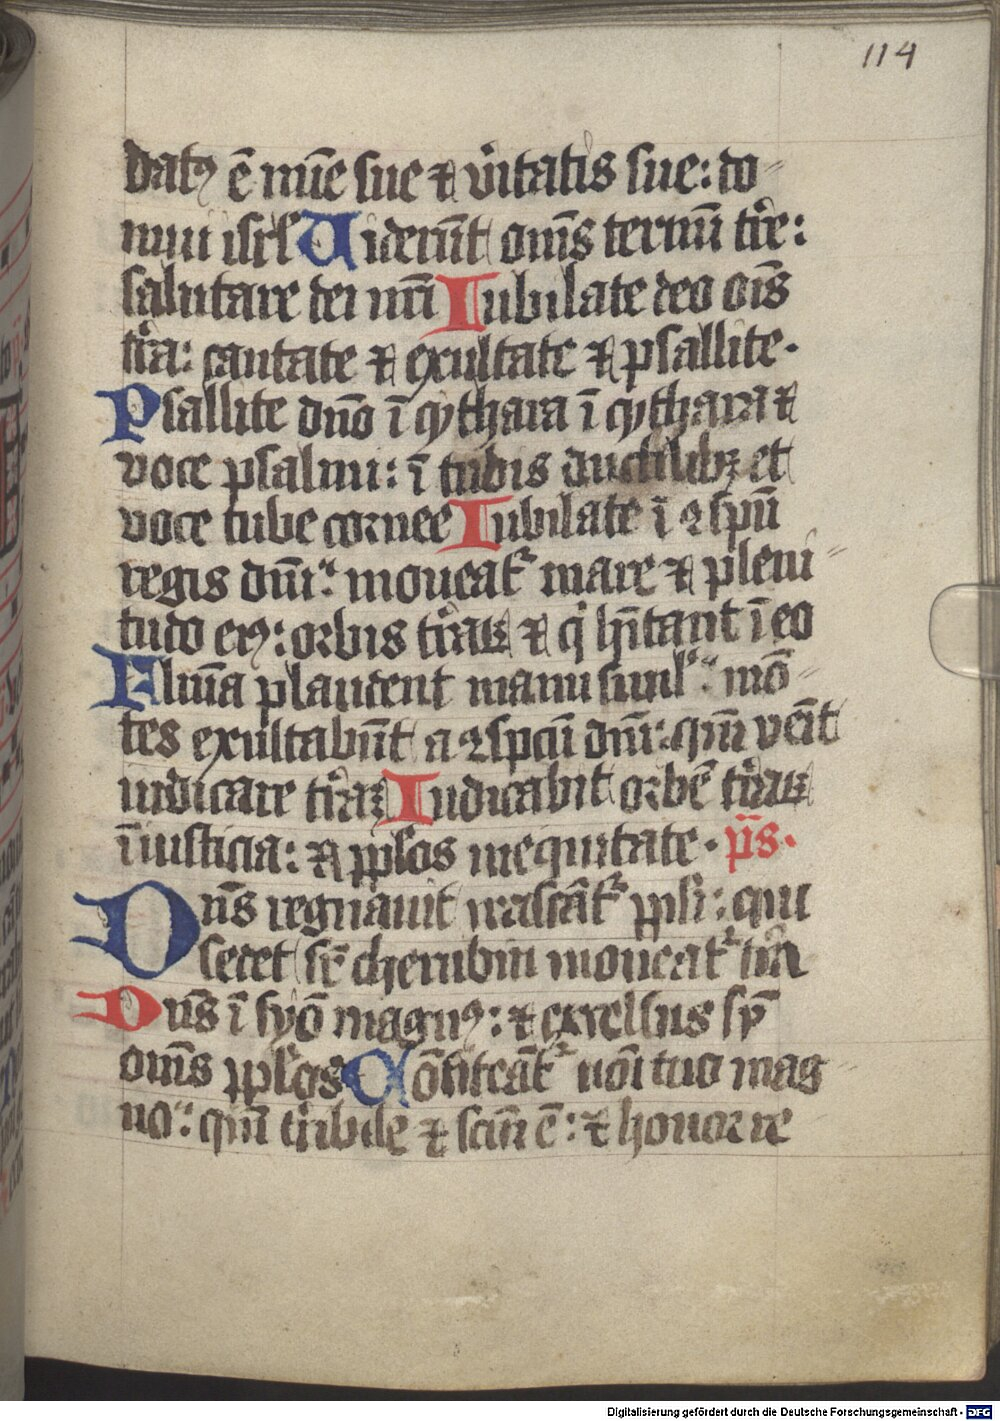 114
datꝰ ē mīe sue ⁊ v̓itatis sue: do-
mui isrl̓ Uiderūt om̄s termī tr̄e:
salutare dei nr̄i Iubilate deo oīs
tr̄a: cantate ⁊ exultate ⁊ psallite.
Psallite dn̄o ī cythara ī cythara ⁊
voce psalmi: ī tubis ductilibꝫ et
voce tube cornee Iubilate ī ꝯspū
regis dn̄i: moueat᷑ mare ⁊ pleni-
tudo eiꝰ: orbis tr̄aꝝ ⁊ q̓ hītant ī eo
Flūīa plaudent manu simul̓: mō-
tes exultabūt a ꝯspcū dn̄i: qm̄ veīt
iudicare tr̄aꝫ Iudicabit orbē tr̄aꝝ
ī iusticia: ⁊ pplos in equitate. p̄s.
Dn̄s regnauit irascāt᷑ ppl̓i: qui
sedet sr̄ cherubin moueat᷑ tr̄a
Dn̄s ī syō magnꝰ: ⁊ excelsus sp̄
om̄s ppl̓os Cōfiteāt᷑ noī tuo mag
no: qm̄ t̓ribile ⁊ scm̄ ē: ⁊ honor re
Digitalisierung gefördert durch die Deutsche Forschungsgemeinschaft - DFG